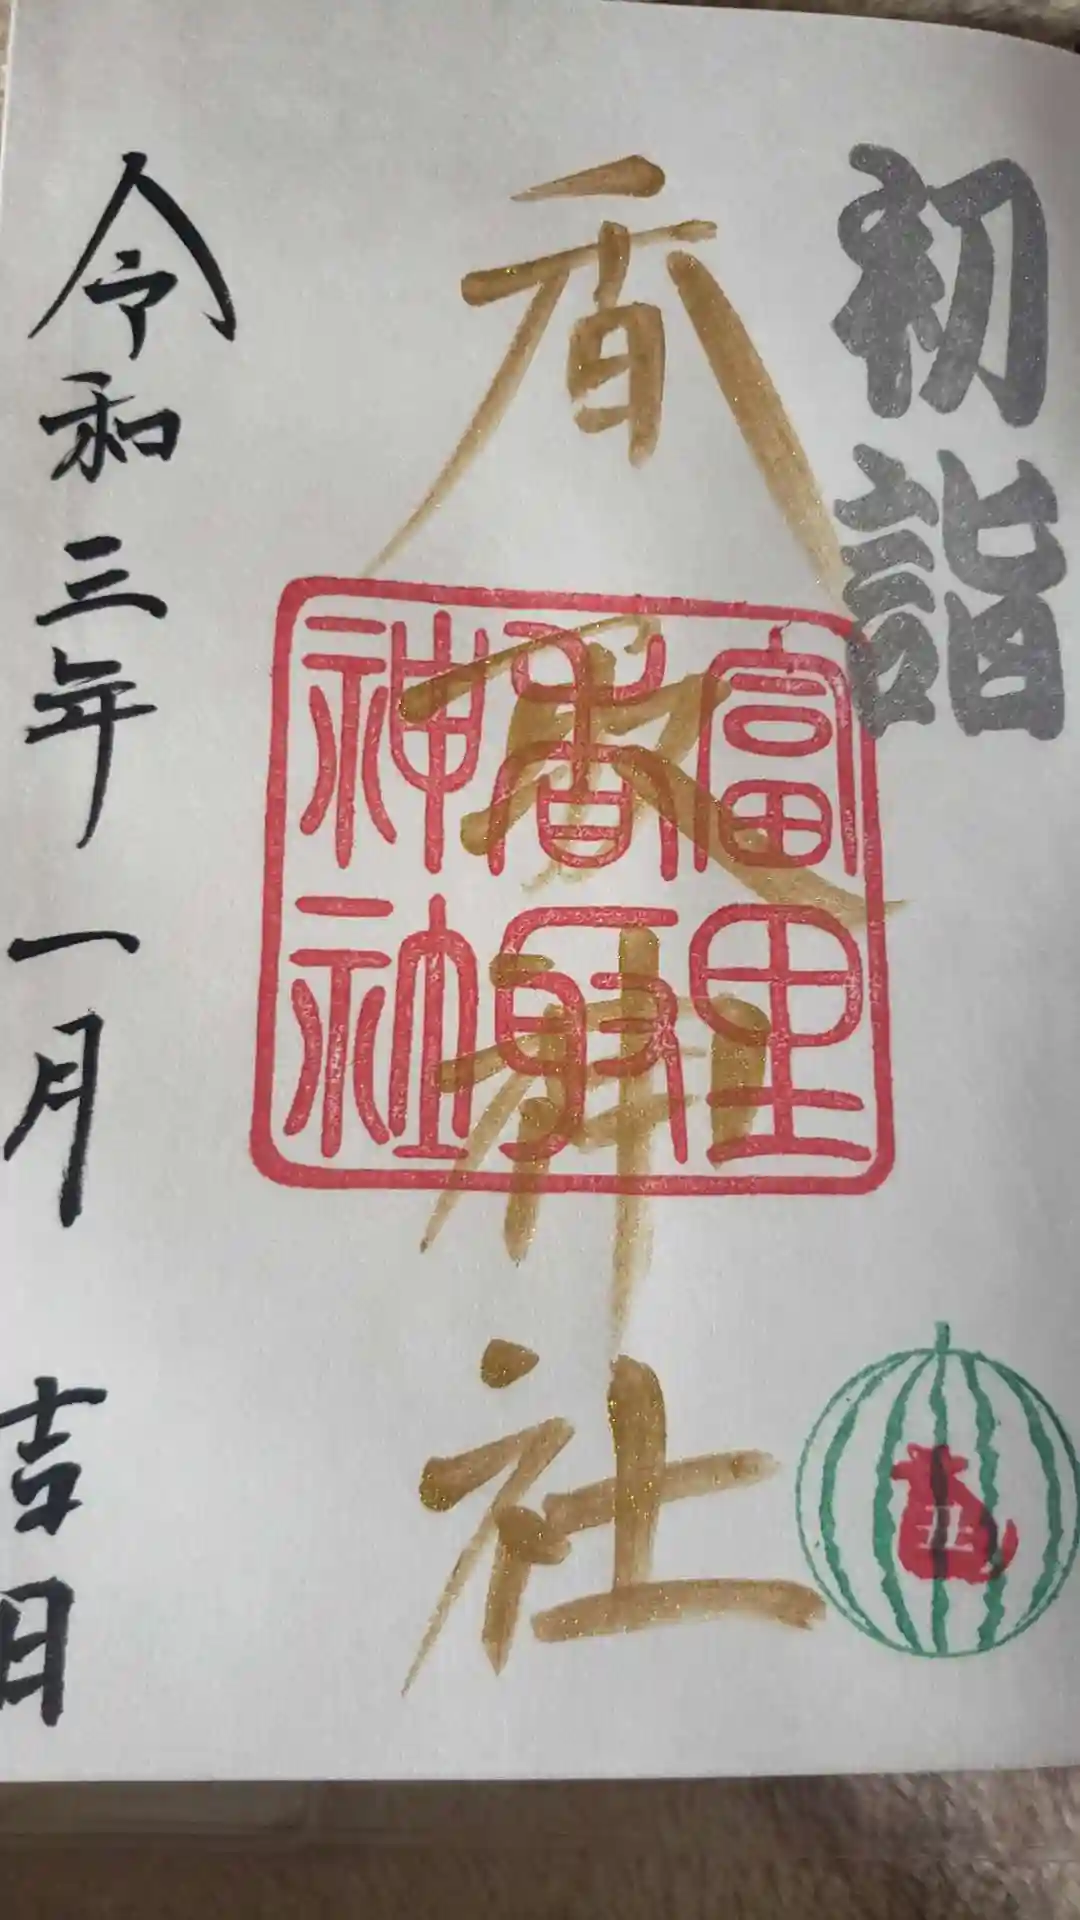 初詣
香取神社
富里
香取
神社
丑
令和三年一月吉日